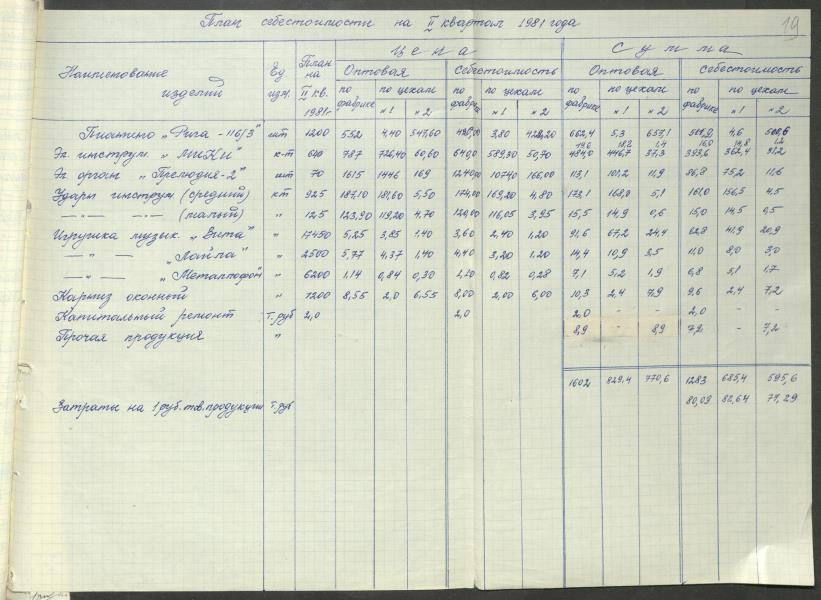 План себестоимости на II квартал 1981 года 19
Цена Сумма
Наименование изделий Ед изм. План на II кв. 1981г Оптовая Себестоимость Оптовая Себестоимость
по фабрике по цехам по фабрике по цехам по фабрике по цехам по фабрике по цехам
№1 №2 №1 №2 №1 №2 №1 №2
Пианино „Рига-116/3" шт 1200 552 4,40 547,60 3,80 662,4 5,3 657,1 4,6
19,6 18,2 1,4 16,0 14,8 1,2
Эл. инструм. „МИКИ" к-т 787 726,40 60,60 640,0 589,30 50,70 484,0 446,7 37,3 393,6 362,4 31,2
Эл. орган „Прелюдия-2" шт 70 1615 1446 169 1240,00 1074,0 166,00 113,1 101,2 11,9 86,8 75,2 11,6
Ударн инструм (средний) кт 925 187,10 181,60 5,50 174,00 169,20 4,80 173,1 168,0 5,1 161,0 156,5 4,5
—"— (малый) " 125 123,90 119,20 4,70 120,00 116,05 3,95 15,5 14,9 0,6 15,0 14,5 0,5
Игрушка музык. „Вита" " 17450 5,25 3,85 1,40 3,60 2,40 1,20 91,6 67,2 24,4 62,8 41,9 20,9
—"— „Лайма" " 2500 5,77 4,37 1,40 4,40 3,20 1,20 14,4 10,9 3,5 11,0 8,0 3,0
—"— „Металлофон" " 6200 1,14 0,84 0,30 1,10 0,82 0,28 7,1 5,2 1,9 6,8 5,1 1,7
Карниз оконный " 1200 8,55 2,0 6,55 8,00 2,00 6,00 10,3 2,4 7,9 9,6 2,4 7,2
Капитальный ремонт т.руб 2,0 2,0 2,0 - - 2,0 - -
Прочая продукция " 8,9 - 8,9 7,2 - 7,2
1602 829,4 770,6 1283 685,4 595,6
Затраты на 1 руб. тов. продукции т.руб 80,09 82,64 77,29